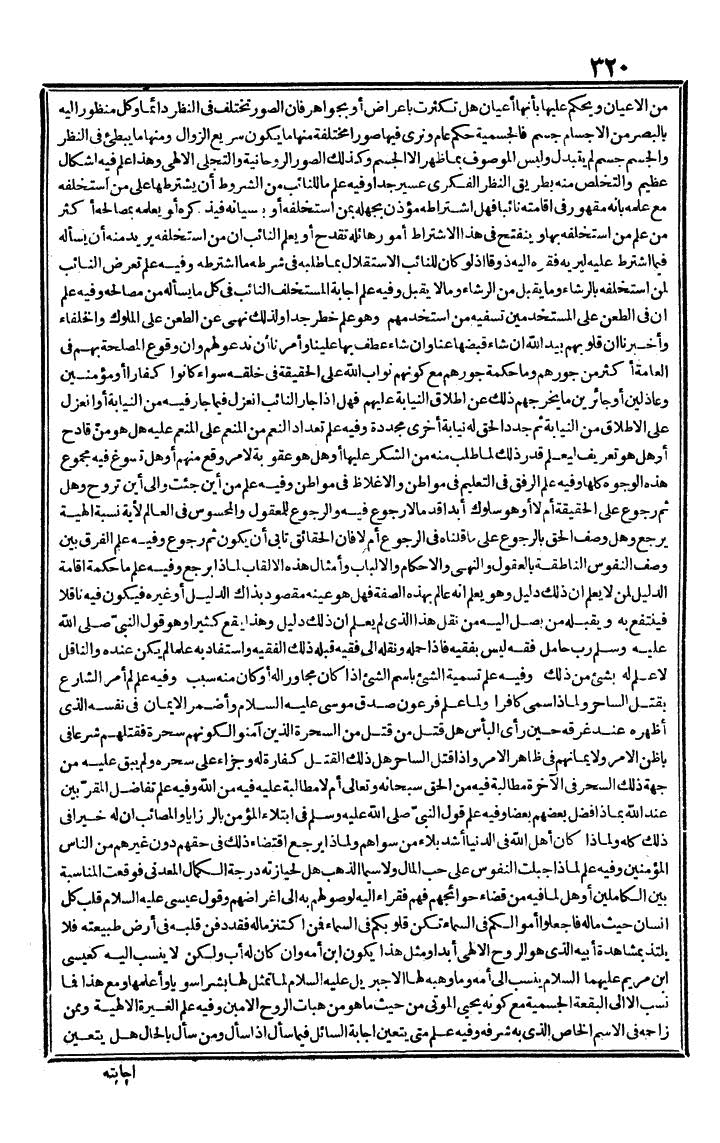 ٣٢٠
من الاعيان ويحكم عليها بأنها أعيان هل تكثرت باعراض أو بجواهر فان الصور تختلف فى النظر دائما وكل منظور اليه
بالبصر من الاجسام جسم فالجسمية حكم عام ونرى فيها صورا مختلفة منها ما يكون سريع الزوال ومنها ما يبطئ فى النظر
والجسم جسم لم يتبدل وليس الموصوف بما ظهر الا الجسم وكذلك الصور الروحانية والتجلى الالهى وهذا علم فيه اشكال
عظيم والتخلص منه بطريق النظر الفكرى عسير جدا وفيه علم ما للنائب من الشروط أن يشترطها على من استخلفه
مع علمه بانه مقهور فى اقامته نائبا فهل اشتراطه مؤذن بجهله بمن استخلفه أو بنسيانه فيذكره أو يعلمه بمصالحه أكثر
من علم من استخلفه بها وينفتح فى هذا الاشتراط أمور هائلة تقدح أو يعلم النائب ان من استخلفه يريد منه أن يسأله
فيما اشترط عليه ليريه فقره اليه ذوقا اذ لو كان للنائب الاستقلال بما طلبه فى شرطه ما اشترطه وفيه علم تعرض النائب
لمن استخلفه بالرشاء وما يقبل من الرشاء وما لا يقبل وفيه علم اجابة المستخلف النائب فى كل ما يسأله من مصالحه وفيه علم
ان فى الطعن على المستخدمين تسفيه من استخدمهم وهو علم خطر جدا ولذلك نهى عن الطعن على الملوك والخلفاء
وأخبرنا ان قلوبهم بيد الله ان شاء قبضها عنا وان شاء عطف بها علينا وأمرنا أن ندعو لهم وان وقوع المصلحة بهم فى
العامة أكثر من جورهم وما حكمة جورهم مع كونهم نواب الله على الحقيقة فى خلقه سواء كانوا كفارا أو مؤمنين
وعادلين أو جائرين ما يخرجهم ذلك عن اطلاق النيابة عليهم فهل اذا جار النائب انعزل فيما جار فيه من النيابة أو انعزل
على الاطلاق من النيابة ثم جدد الحق له نيابة أخرى مجددة وفيه علم تعداد النعم من المنعم على المنعم عليه هل هو منّ قادح
أو هل هو تعريف ليعلم قدر ذلك لما طلب منه من الشكر عليها أو هل هو عقوبة لامر وقع منهم أو هل تسوغ فيه مجموع
هذه الوجوه كلها وفيه علم الرفق فى التعليم فى مواطن والاغلاظ فى مواطن وفيه علم من أين جئت والى أين تروح وهل
ثم رجوع على الحقيقة أم لا أو هو سلوك أبدا قدما لا رجوع فيه والرجوع للعقول والمحسوس فى العالم لأية نسبة الهية
يرجع وهل وصف الحق بالرجوع على ما قلناه فى الرجوع أم لا فان الحقائق تابى أن يكون ثم رجوع وفيه علم الفرق بين
وصف النفوس الناطقة بالعقول والنهى والاحكام والالباب وأمثال هذه الالقاب لماذا يرجع وفيه علم ما حكمة اقامة
الدليل لمن لا يعلم ان ذلك دليل وهو يعلم انه عالم بهذه الصفة فهل هو عينه مقصود بذاك الدليل أو غيره فيكون فيه ناقلا
فينتفع به ويقبله من يصل اليه من نقل هذا الذى لم يعلم ان ذلك دليل وهذا يقع كثيرا وهو قول النبىّ صلى الله
عليه وسلم رب حامل فقه ليس بفقيه فاذا حمله ونقله الى فقيه قبله ذلك الفقيه واستفاد به علما لم يكن عنده والناقل
لا علم له بشئ من ذلك وفيه علم تسمية الشئ باسم الشئ اذا كان مجاورا له أو كان منه سبب وفيه علم لم أمر الشارع
بقتل الساحر ولماذا سمى كافرا ولما علم فرعون صدق موسى عليه السلام وأضمر الايمان فى نفسه الذى
أظهره عند غرقه حين رأى البأس هل قتل من قتل من السحرة الذين آمنوا لكونهم سحرة فقتلهم شرعا فى
باطن الامر ولايمانهم فى ظاهر الامر واذا قتل الساحر هل ذلك القتل كفارة له وجزاء على سحره ولم يبق عليه من
جهة ذلك السحر فى الآخرة مطالبة فيه من الحق سبحانه وتعالى أم لا مطالبة عليه فيه من الله وفيه علم تفاضل المقرّبين
عند الله بماذا فضل بعضهم بعضا وفيه علم قول النبىّ صلى الله عليه وسلم فى ابتلاء المؤمن بالرزايا والمصائب ان له خيرا فى
ذلك كله ولماذا كان أهل الله فى الدنيا أشد بلاء من سواهم ولماذا يرجع اقتضاء ذلك فى حقهم دون غيرهم من الناس
المؤمنين وفيه علم لماذا جبلت النفوس على حب المال ولا سيما الذهب هل لحيازته درجة الكمال المعدنى فوقعت المناسبة
بين الكاملين أو هل لما فيه من قضاء حوائجهم فهم فقراء اليه لوصولهم به الى اغراضهم وقول عيسى عليه السلام قلب كل
انسان حيث ماله فاجعلوا أموالكم فى السماء تكن قلوبكم فى السماء فمن اكتنز ماله فقد دفن قلبه فى أرض طبيعته فلا
يلتذ بمشاهدة أبيه الذى هو الروح الالهى أبدا ومثل هذا يكون ابن أمه وان كان له أب ولكن لا ينسب اليه كعيسى
ابن مريم عليهما السلام ينسب الى أمه وما وهبه لها الا جبريل عليه السلام لما تمثل لها بشرا سويا وأعلمها ومع هذا فما
نسب الا الى البقعة الجسمية مع كونه يحيى الموتى من حيث ما هو من هبات الروح الامين وفيه علم الغيرة الالهية وممن
زاحمه فى الاسم الخاص الذى به شرفه وفيه علم متى يتعين اجابة السائل فيما سأل اذا سأل ومن سأل بالحال هل يتعين
اجابته